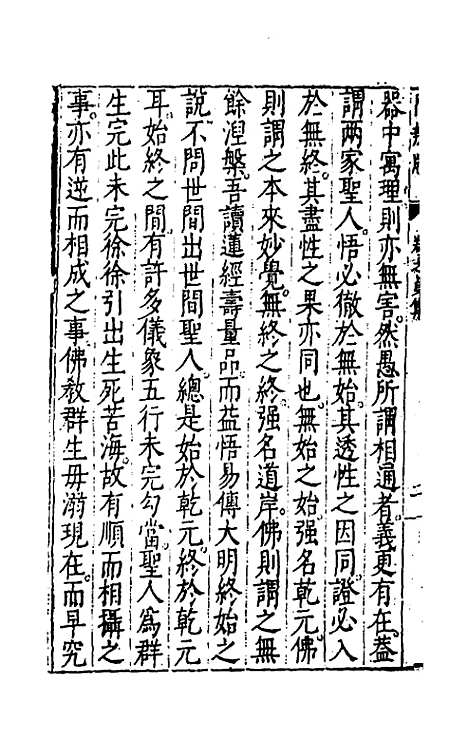 器中寓理則亦無害。然愚所謂相通者。義更有在。葢
謂兩家聖人。悟必徹於無始。其透性之因同。證必入
於無終。其盡性之果亦同也。無始之始。强名乾元。佛
則謂之本來妙覺。無終之終。强名道岸。佛則謂之無
餘湼槃。吾讀蓮經壽量品。而益悟易傳大明終始之
說。不問世間出世間聖人。總是始於乾元。終於乾元
耳。始終之間。有許多儀象五行未完勾當。聖人爲群
生完此未完。徐徐引出生死苦海。故有順而相攝之
事。亦有逆而相成之事。佛教群生毋溺現在。而早究